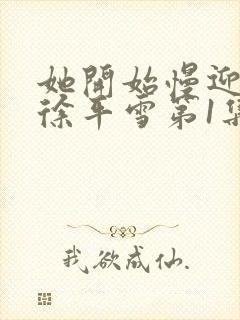 她開始慢迎
徐平雪第1集
我欲成仙.